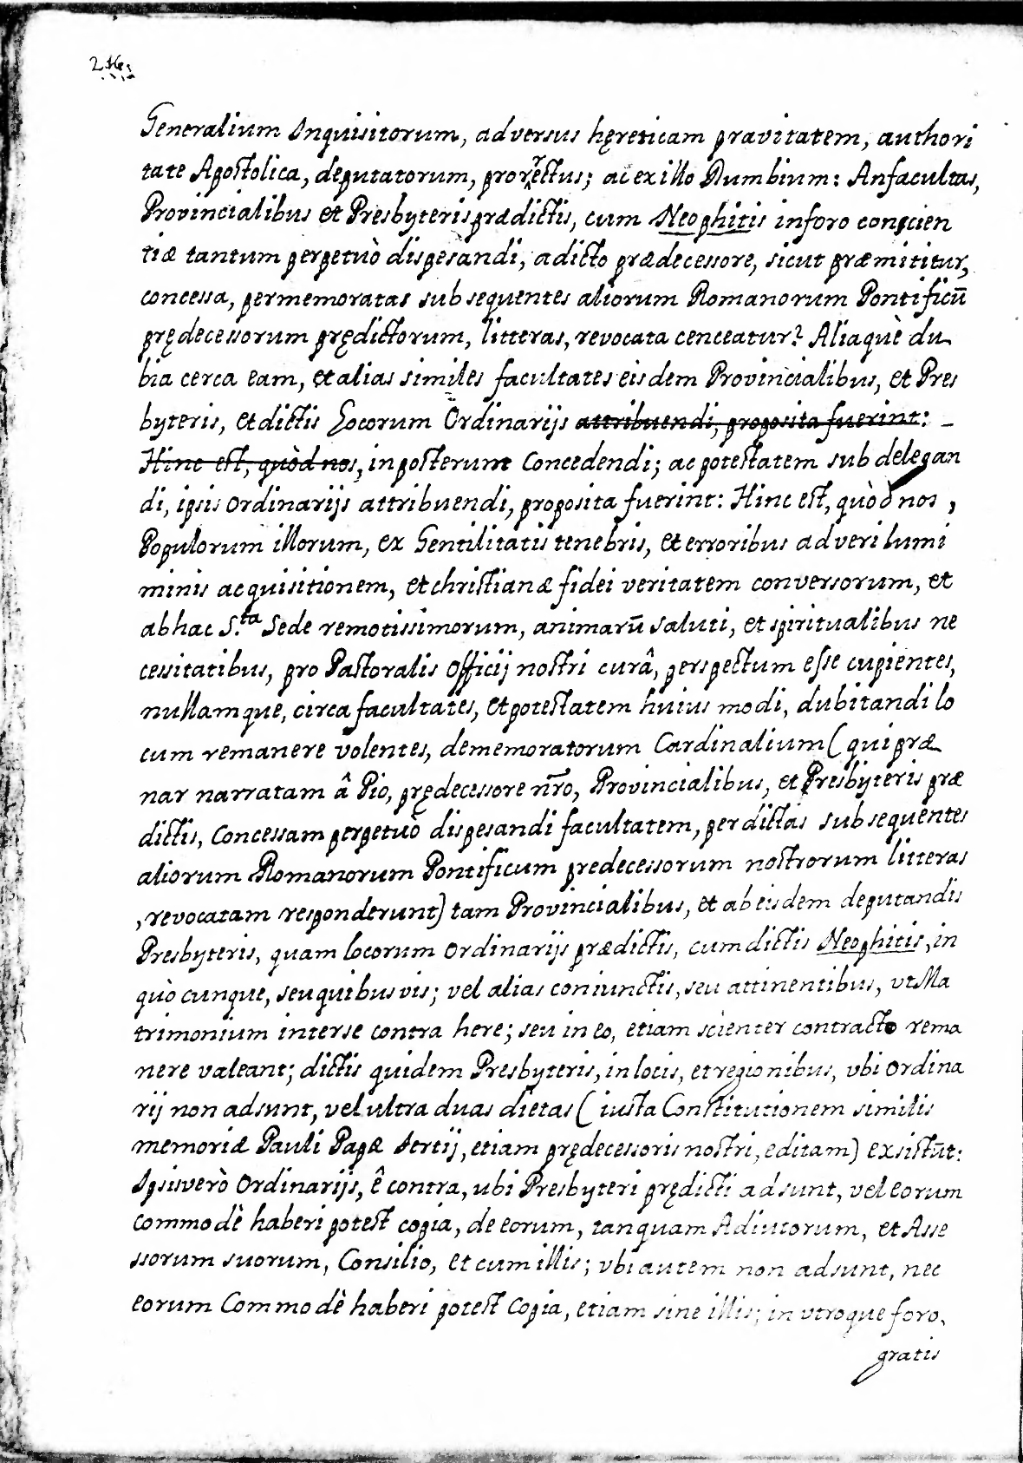 Generalium Inquisitorum, adversus hęreticam pravitatem, authori
tate Apostolica, deputatorum, provectus; ac ex illo Dumbium: An facultas,
Provincialibus et Presbyteris prædictis, cum Neophitis in foro conscien
tiæ tantum perpetuò dispesandi, a dicto prædecessore, sicut præmititur,
concessa, per memoratas subsequentes aliorum Romanorum Pontificū
prędecessorum prędictorum, litteras, revocata cenceatur? Aliaquè du
bia cerca eam, et alias similes facultates eisdem Provincialibus, et Pres
byteris, et dictis Locorum Ordinarijs attribuendi, proposita fuerint:
Hinc est, quòd nos, in posterum Concedendi; ac potestatem subdelegan
di, ipsis Ordinarijs attribuendi, proposita fuerint: Hinc est, quòd nos,
Populorum illorum, ex Gentilitatis tenebris, et erroribus ad veri lumi
minis acquisitionem, et christianæ fidei veritatem conversorum, et
ab hac S.ta Sede remotissimorum, animarū saluti, et spiritualibus ne
cessitatibus, pro Pastoralis Officij nostri curâ, perspectum esse cupientes,
nullamque, circa facultates, et potestatem huius modi, dubitandi lo
cum remanere volentes, de memoratorum Cardinalium (qui præ
nar narratam â Pio, prędecessore nr̄o, Provincialibus, et Presbyteris præ
dictis, Concessam perpetuò dispesandi facultatem, per dictas subsequentes
aliorum Romanorum Pontificum predecessorum nostrorum litteras
, revocatam responderunt) tam Provincialibus, et ab eisdem deputandis
Presbyteris, quam locorum Ordinarijs prædictis, cum dictis Neophitis, in
quò cunque, seu quibusvis; vel alias coniunctis, seu attinentibus, vt Ma
trimonium inter se contra here; seu in eo, etiam scienter contracto rema
nere valeant; dictis quidem Presbyteris, in locis, et regionibus, vbi Ordina
rij non adsunt, vel ultra duas dietas (iusta Constitutionem similis
memoriæ Pauli Papæ tertij, etiam prędecessoris nostri, editam) existūt:
Ipsis verò Ordinarijs, ê contra, ubi Presbyteri prędicti adsunt, vel eorum
commodè haberi potest copia, de eorum, tanquam Adiutorum, et Asse
ssorum suorum, Consilio, et cum illis; vbi autem non adsunt, nec
eorum Commodè haberi potest Copia, etiam sine illis; in vtroque foro,
gratis